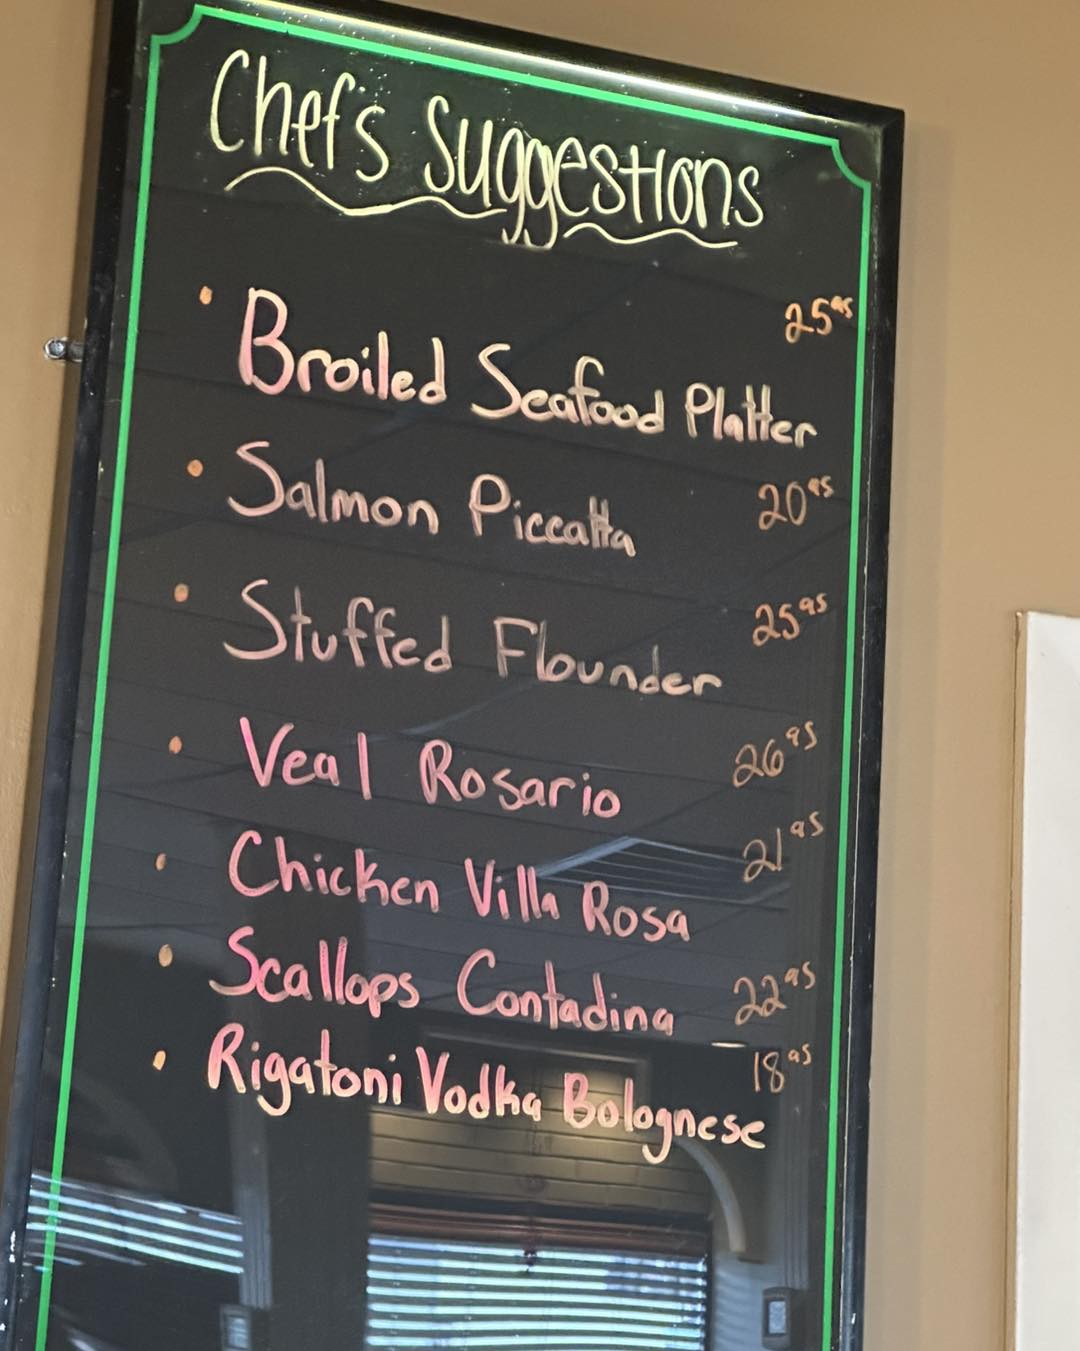 Chef's Suggestions
• Broiled Seafood Platter 25.95
• Salmon Piccatta 20.95
• Stuffed Flounder 25.95
• Veal Rosario 26.95
• Chicken Villa Rosa 21.95
• Scallops Contadina 22.95
• Rigatoni Vodka Bolognese 18.95